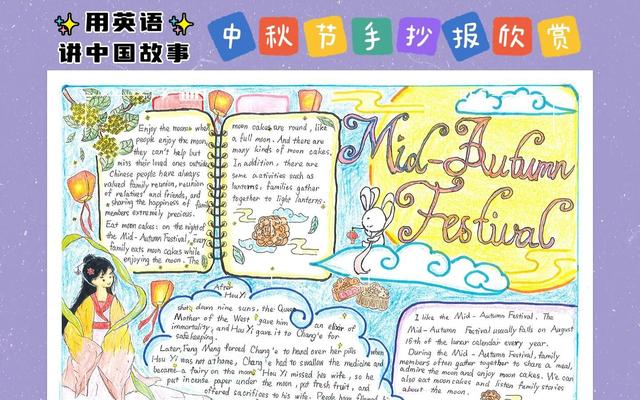 用英语
讲中国故事
中秋节手抄报欣赏
Mid-Autumn
Festival
Enjoy the moon: when
people enjoy the moon,
they can't help but
miss their loved ones outside.
Chinese people have always
valued family reunion, reunion
of relatives' and friends, and
sharing the happiness of family
members extremely precious.
Eat moon cakes: on the night of
the Mid-Autumn Festival, every
family eats moon cakes while
enjoying the moon. The
moon cakes are round, like
a full moon. And there are
many kinds of moon cakes.
In addition, there are
some activities such as
lanterns, families gather
together to light lanterns.
After
Hou Yi
shot down nine suns, the Queen
Mother of the West gave him an elixir of
immortality, and Hou Yi gave it to Chang'e for
safekeeping.
Later, Feng Meng forced Chang'e to hand over her pills when
Hou Yi was not at home, Chang'e had to swallow the medicine and
became a fairy on the moon. Hou Yi missed his wife, so he
put incense paper under the moon, put fresh fruit, and
offered sacrifices to his wife. People have
I like the Mid-Autumn Festival. The
Mid-Autumn Festival usually falls on August
15th of the lunar calendar every year.
During the Mid-Autumn Festival, family
members often gather together to share a meal,
admire the moon and enjoy moon cakes. We can
also eat moon cakes and listen family stories
about the moon.